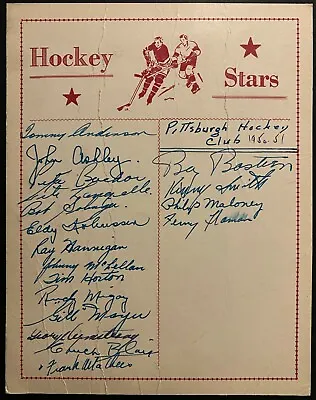 Hockey
Stars
Tommy Anderson
John Ashley
Pete Backor
Bob Solinger
Eldy Kobussen
Ray Hannigan
Johnny McLellan
Tim Horton
Rudy Migay
Gil Mayer
George Armstrong
Chuck Blair
Frank Mathers
Pittsburgh Hockey
Club 1950-51
Baz Bastien
Sid Smith
Philip Maloney
Ferny Flaman